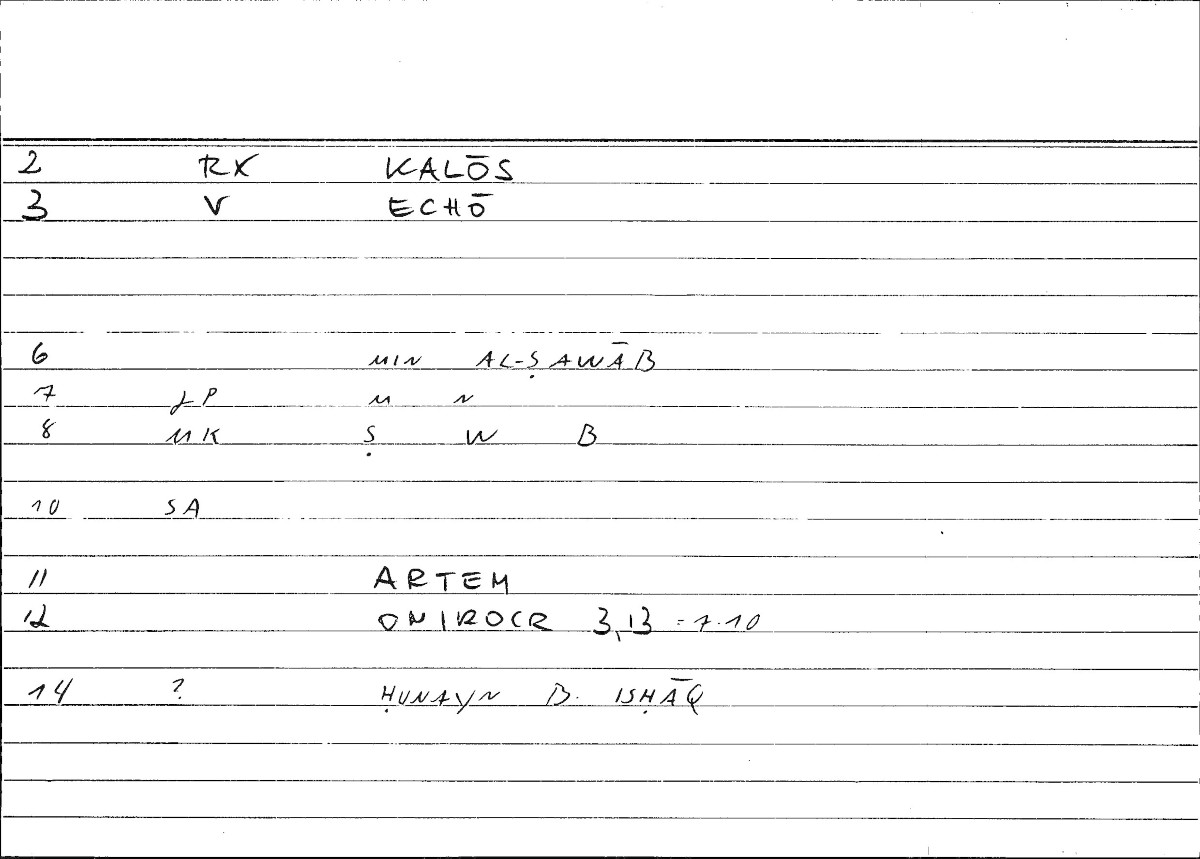 2 RX KALŌS
3 V ECHŌ
6 MIN AL-ṢAWĀB
7 JP M N
8 MK Ṣ W B
10 SA
11 ARTEM
12 ONIROCR 3,13 = 7.10
14 ? ḤUNAYN B. ISḤĀQ